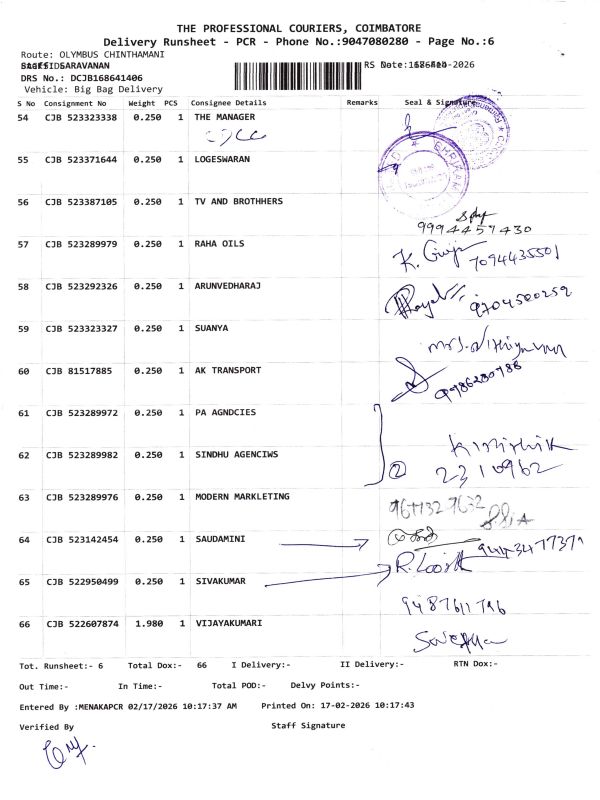 THE PROFESSIONAL COURIERS, COIMBATORE
Delivery Runsheet - PCR - Phone No.:9047080280 - Page No.:6
Route: OLYMBUS CHINTHAMANI
SARAVANAN
DRS No.: DCJB168641406
Vehicle: Big Bag Delivery
S No Consignment No Weight PCS Consignee Details Remarks Seal & Signature
54 CJB 523323338 0.250 1 THE MANAGER
55 CJB 523371644 0.250 1 LOGESWARAN
56 CJB 523387105 0.250 1 TV AND BROTHHERS
9994457430
57 CJB 523289979 0.250 1 RAHA OILS
7094435501
58 CJB 523292326 0.250 1 ARUNVEDHARAJ
9704500259
59 CJB 523323327 0.250 1 SUANYA
60 CJB 81517885 0.250 1 AK TRANSPORT
61 CJB 523289972 0.250 1 PA AGNDCIES
62 CJB 523289982 0.250 1 SINDHU AGENCIWS
2 2310962
63 CJB 523289976 0.250 1 MODERN MARKLETING
64 CJB 523142454 0.250 1 SAUDAMINI
65 CJB 522950499 0.250 1 SIVAKUMAR
66 CJB 522607874 1.980 1 VIJAYAKUMARI
Tot. Runsheet:- 6 Total Dox:- 66 I Delivery:- II Delivery:- RTN Dox:-
Out Time:- In Time:- Total POD:- Delvy Points:-
Entered By :MENAKAPCR 02/17/2026 10:17:37 AM Printed On: 17-02-2026 10:17:43
Verified By Staff Signature